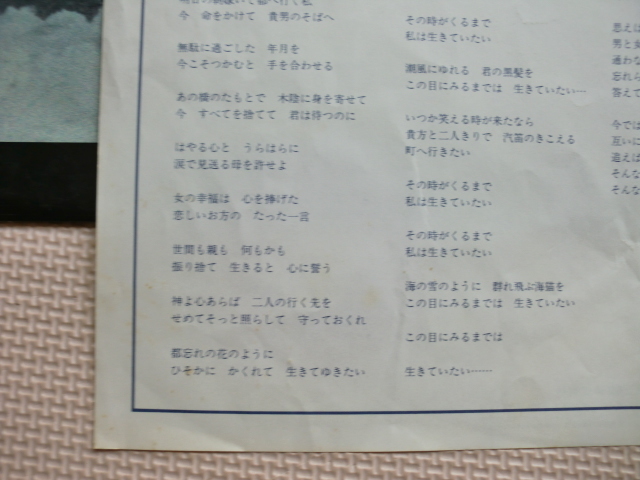 今 命をかけて 貴男のそばへ
無駄に過ごした 年月を
今こそつかむと 手を合わせる
あの橋のたもとで 木陰に身を寄せて
今 すべてを捨てて 君は待つのに
はやる心と うらはらに
涙で見送る母を許せよ
女の幸福は 心を捧げた
悲しいお方の たった一言
世間も親も 何もかも
振り捨て 生きると 心に誓う
神よ心あらば 二人の行く先を
せめてそっと照らして 守っておくれ
都忘れの花のように
ひそかに かくれて 生きてゆきたい
その時がくるまで
私は生きていたい
潮風にゆれる 君の黒髪を
この目にみるまでは 生きていたい…
いつか笑える時が来たなら
貴方と二人きりで 汽笛のきこえる
町へ行きたい
その時がくるまで
私は生きていたい
その時がくるまで
私は生きていたい
海の雪のように 群れ飛ぶ海猫を
この目にみるまでは 生きていたい
この目にみるまでは
生きていたい……
思えば
男と女
通わな
忘れら
答えて
今では
互いに
追えば
そんな
そんな